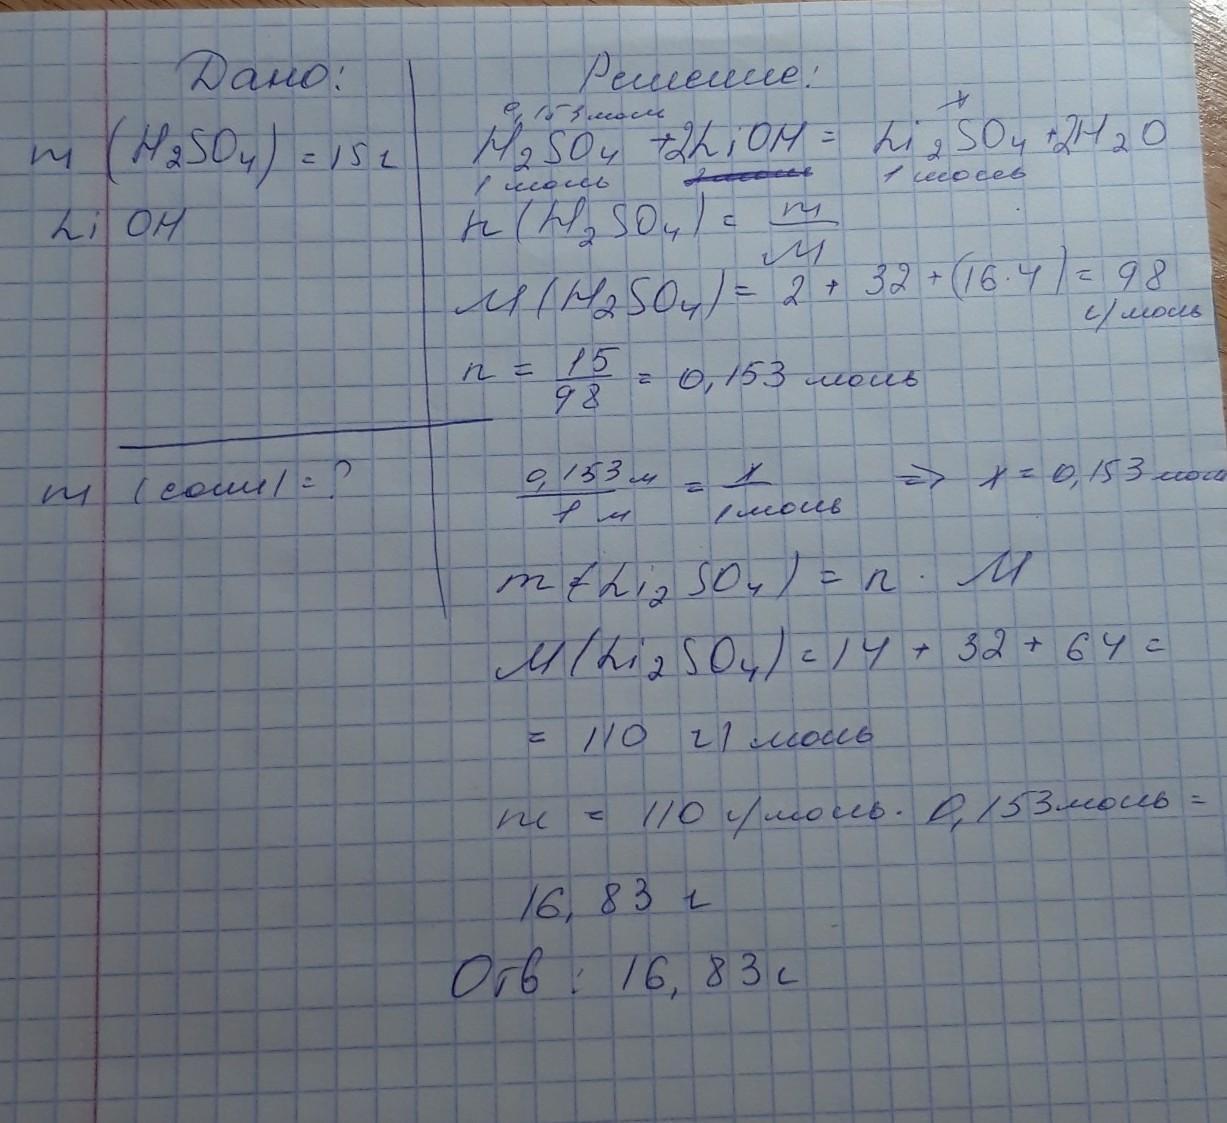 Дано:
m (H₂SO₄) = 15 г
Li OH
m (соли) = ?
Решение:
0,153 моль x
H₂SO₄ + 2LiOH = Li₂SO₄ + 2H₂O
1 моль 1 моль
n (H₂SO₄) = m/M
M (H₂SO₄) = 2 + 32 + (16·4) = 98
г/моль
n = 15/98 = 0,153 моль
0,153 м/1 м = x/1 моль => x = 0,153 моль
m (Li₂SO₄) = n · M
M (Li₂SO₄) = 14 + 32 + 64 =
= 110 г/моль
m = 110 г/моль · 0,153 моль =
16,83 г
Отв : 16,83 г